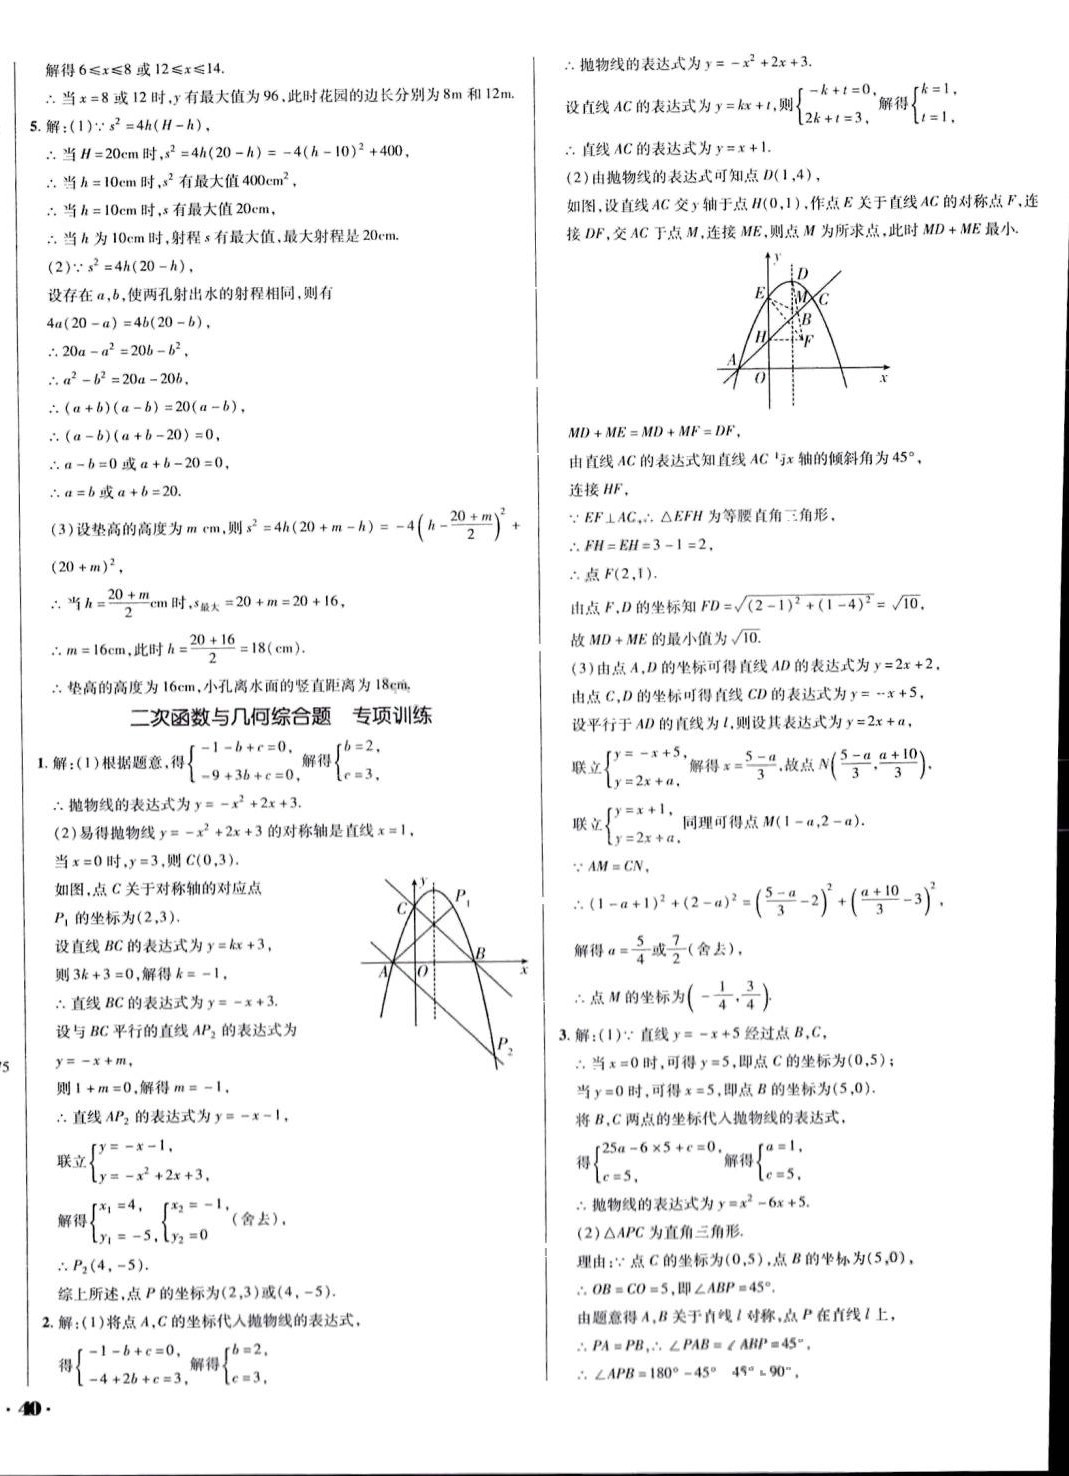 解得 6≤x≤8 或 12≤x≤14.
∴ 当 x=8 或 12 时,y 有最大值为 96,此时花园的边长分别为 8m 和 12m.
5. 解:(1)∵ s²=4h(H-h),
∴ 当 H=20cm 时,s²=4h(20-h)=-4(h-10)²+400,
∴ 当 h=10cm 时,s² 有最大值 400cm²,
∴ 当 h=10cm 时,s 有最大值 20cm,
∴ 当 h 为 10cm 时,射程 s 有最大值,最大射程是 20cm.
(2)∵ s²=4h(20-h),
设存在 a,b,使两孔射出水的射程相同,则有
4a(20-a)=4b(20-b),
∴ 20a-a²=20b-b²,
∴ a²-b²=20a-20b,
∴ (a+b)(a-b)=20(a-b),
∴ (a-b)(a+b-20)=0,
∴ a-b=0 或 a+b-20=0,
∴ a=b 或 a+b=20.
(3)设垫高的高度为 m cm,则 s²=4h(20+m-h)=-4(h-(20+m)/2)²+
(20+m)²,
∴ 当 h=(20+m)/2 cm 时,s最大=20+m=20+16,
∴ m=16cm,此时 h=(20+16)/2=18(cm).
∴ 垫高的高度为 16cm,小孔离水面的竖直距离为 18cm.
二次函数与几何综合题 专项训练
1. 解:(1)根据题意,得{-1-b+c=0, -9+3b+c=0, 解得{b=2, c=3,
∴ 抛物线的表达式为 y=-x²+2x+3.
(2)易得抛物线 y=-x²+2x+3 的对称轴是直线 x=1,
当 x=0 时,y=3,则 C(0,3).
如图,点 C 关于对称轴的对应点
P₁ 的坐标为(2,3).
设直线 BC 的表达式为 y=kx+3,
则 3k+3=0,解得 k=-1,
∴ 直线 BC 的表达式为 y=-x+3.
设与 BC 平行的直线 AP₂ 的表达式为
y=-x+m,
则 1+m=0,解得 m=-1,
∴ 直线 AP₂ 的表达式为 y=-x-1,
联立{y=-x-1, y=-x²+2x+3,
解得{x₁=4, y₁=-5, {x₂=-1, y₂=0 (舍去),
∴ P₂(4,-5).
综上所述,点 P 的坐标为(2,3)或(4,-5).
y
C
P₁
A
O
B
x
P₂
2. 解:(1)将点 A,C 的坐标代入抛物线的表达式,
得{-1-b+c=0, -4+2b+c=3, 解得{b=2, c=3,
75
· 40 ·
∴ 抛物线的表达式为 y=-x²+2x+3.
设直线 AC 的表达式为 y=kx+t,则{-k+t=0, 2k+t=3, 解得{k=1, t=1,
∴ 直线 AC 的表达式为 y=x+1.
(2)由抛物线的表达式可知点 D(1,4),
如图,设直线 AC 交 y 轴于点 H(0,1),作点 E 关于直线 AC 的对称点 F,连
接 DF,交 AC 于点 M,连接 ME,则点 M 为所求点,此时 MD+ME 最小.
y
D
E
M
C
B
H
F
A
O
x
MD+ME=MD+MF=DF,
由直线 AC 的表达式知直线 AC 与 x 轴的倾斜角为 45°,
连接 HF,
∵ EF⊥AC,∴ △EFH 为等腰直角三角形,
∴ FH=EH=3-1=2,
∴ 点 F(2,1).
由点 F,D 的坐标知 FD=√((2-1)²+(1-4)²)=√10,
故 MD+ME 的最小值为√10.
(3)由点 A,D 的坐标可得直线 AD 的表达式为 y=2x+2,
由点 C,D 的坐标可得直线 CD 的表达式为 y=-x+5,
设平行于 AD 的直线为 l,则设其表达式为 y=2x+a,
联立{y=-x+5, y=2x+a, 解得 x=(5-a)/3,故点 N((5-a)/3,(a+10)/3),
联立{y=x+1, y=2x+a, 同理可得点 M(1-a,2-a).
∵ AM=CN,
∴ (1-a+1)²+(2-a)²=((5-a)/3-2)²+((a+10)/3-3)²,
解得 a=5/4或7/2(舍去),
∴ 点 M 的坐标为(-1/4,3/4).
3. 解:(1)∵ 直线 y=-x+5 经过点 B,C,
∴ 当 x=0 时,可得 y=5,即点 C 的坐标为(0,5);
当 y=0 时,可得 x=5,即点 B 的坐标为(5,0).
将 B,C 两点的坐标代入抛物线的表达式,
得{25a-6×5+c=0, c=5, 解得{a=1, c=5,
∴ 抛物线的表达式为 y=x²-6x+5.
(2)△APC 为直角三角形.
理由:∵ 点 C 的坐标为(0,5),点 B 的坐标为(5,0),
∴ OB=CO=5,即∠ABP=45°.
由题意得 A,B 关于直线 l 对称,点 P 在直线 l 上,
∴ PA=PB,∴ ∠PAB=∠ABP=45°,
∴ ∠APB=180°-45° 45°=90°,